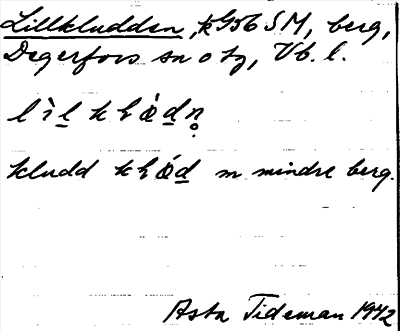 Lillkludden, kG56 SM, berg,
Degerfors sn o tg, Vb. l.
lìl̲ khœ̀d̲n̥
kludd khœ́d̲ m mindre berg.
Asta Tideman 1942